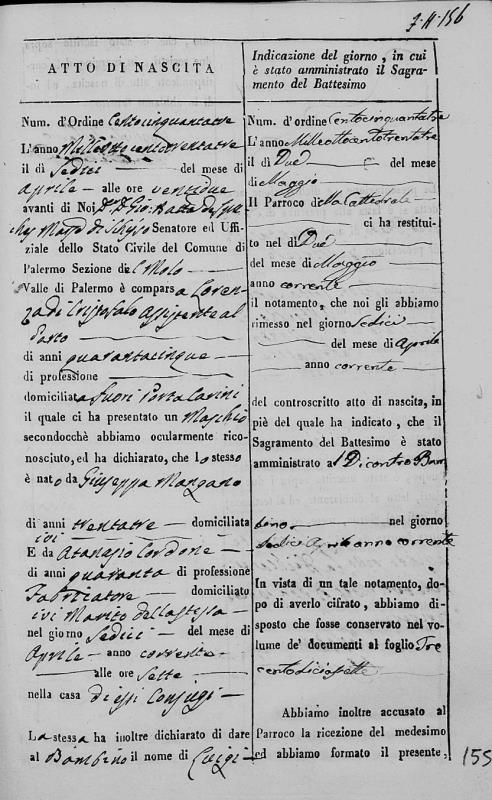 ATTO DI NASCITA
Num. d'Ordine Centocinquantatre
L'anno Milleottocentotrentatre
il dì Sedici del mese di
Aprile alle ore ventidue
avanti di Noi D. Gio: Batta
Senatore ed Uffi-
ziale dello Stato Civile del Comune di
Palermo Sezione del Molo
Valle di Palermo è comparsa Loren-
za di Cristofalo Assistente al
Parto
di anni quarantacinque
di professione
domiciliata fuori Porta Carini
il quale ci ha presentato un Maschio
secondocchè abbiamo ocularmente rico-
nosciuto, ed ha dichiarato, che lo stesso
è nato da Giuseppa Mangano
di anni trentatre domiciliata
ivi
E da Atanasio Cordone
di anni quaranta di professione
domiciliato
ivi Marito della stessa
nel giorno Sedici del mese di
Aprile anno corrente
alle ore Sette
nella casa di essi Conjugi
La stessa ha inoltre dichiarato di dare
al Bambino il nome di Luigi
Indicazione del giorno, in cui
è stato amministrato il Sagra-
mento del Battesimo
Num. d'ordine Centocinquantatre
L'anno Milleottocentotrentatre
il dì Due del mese
di Maggio
Il Parroco della Cattedrale
ci ha restitui-
to nel dì Due
del mese di Maggio
anno corrente
il notamento, che noi gli abbiamo
rimesso nel giorno Sedici
del mese di Aprile
anno corrente
del controscritto atto di nascita, in
piè del quale ha indicato, che il
Sagramento del Battesimo è stato
amministrato al Dicontro Bam
bino nel giorno
Sedici Aprile anno corrente
In vista di un tale notamento, do-
po di averlo cifrato, abbiamo di-
sposto che fosse conservato nel vo-
lume de' documenti al foglio Tre
centodiciasette
Abbiamo inoltre accusato al
Parroco la ricezione del medesimo
ed abbiamo formato il presente,
155